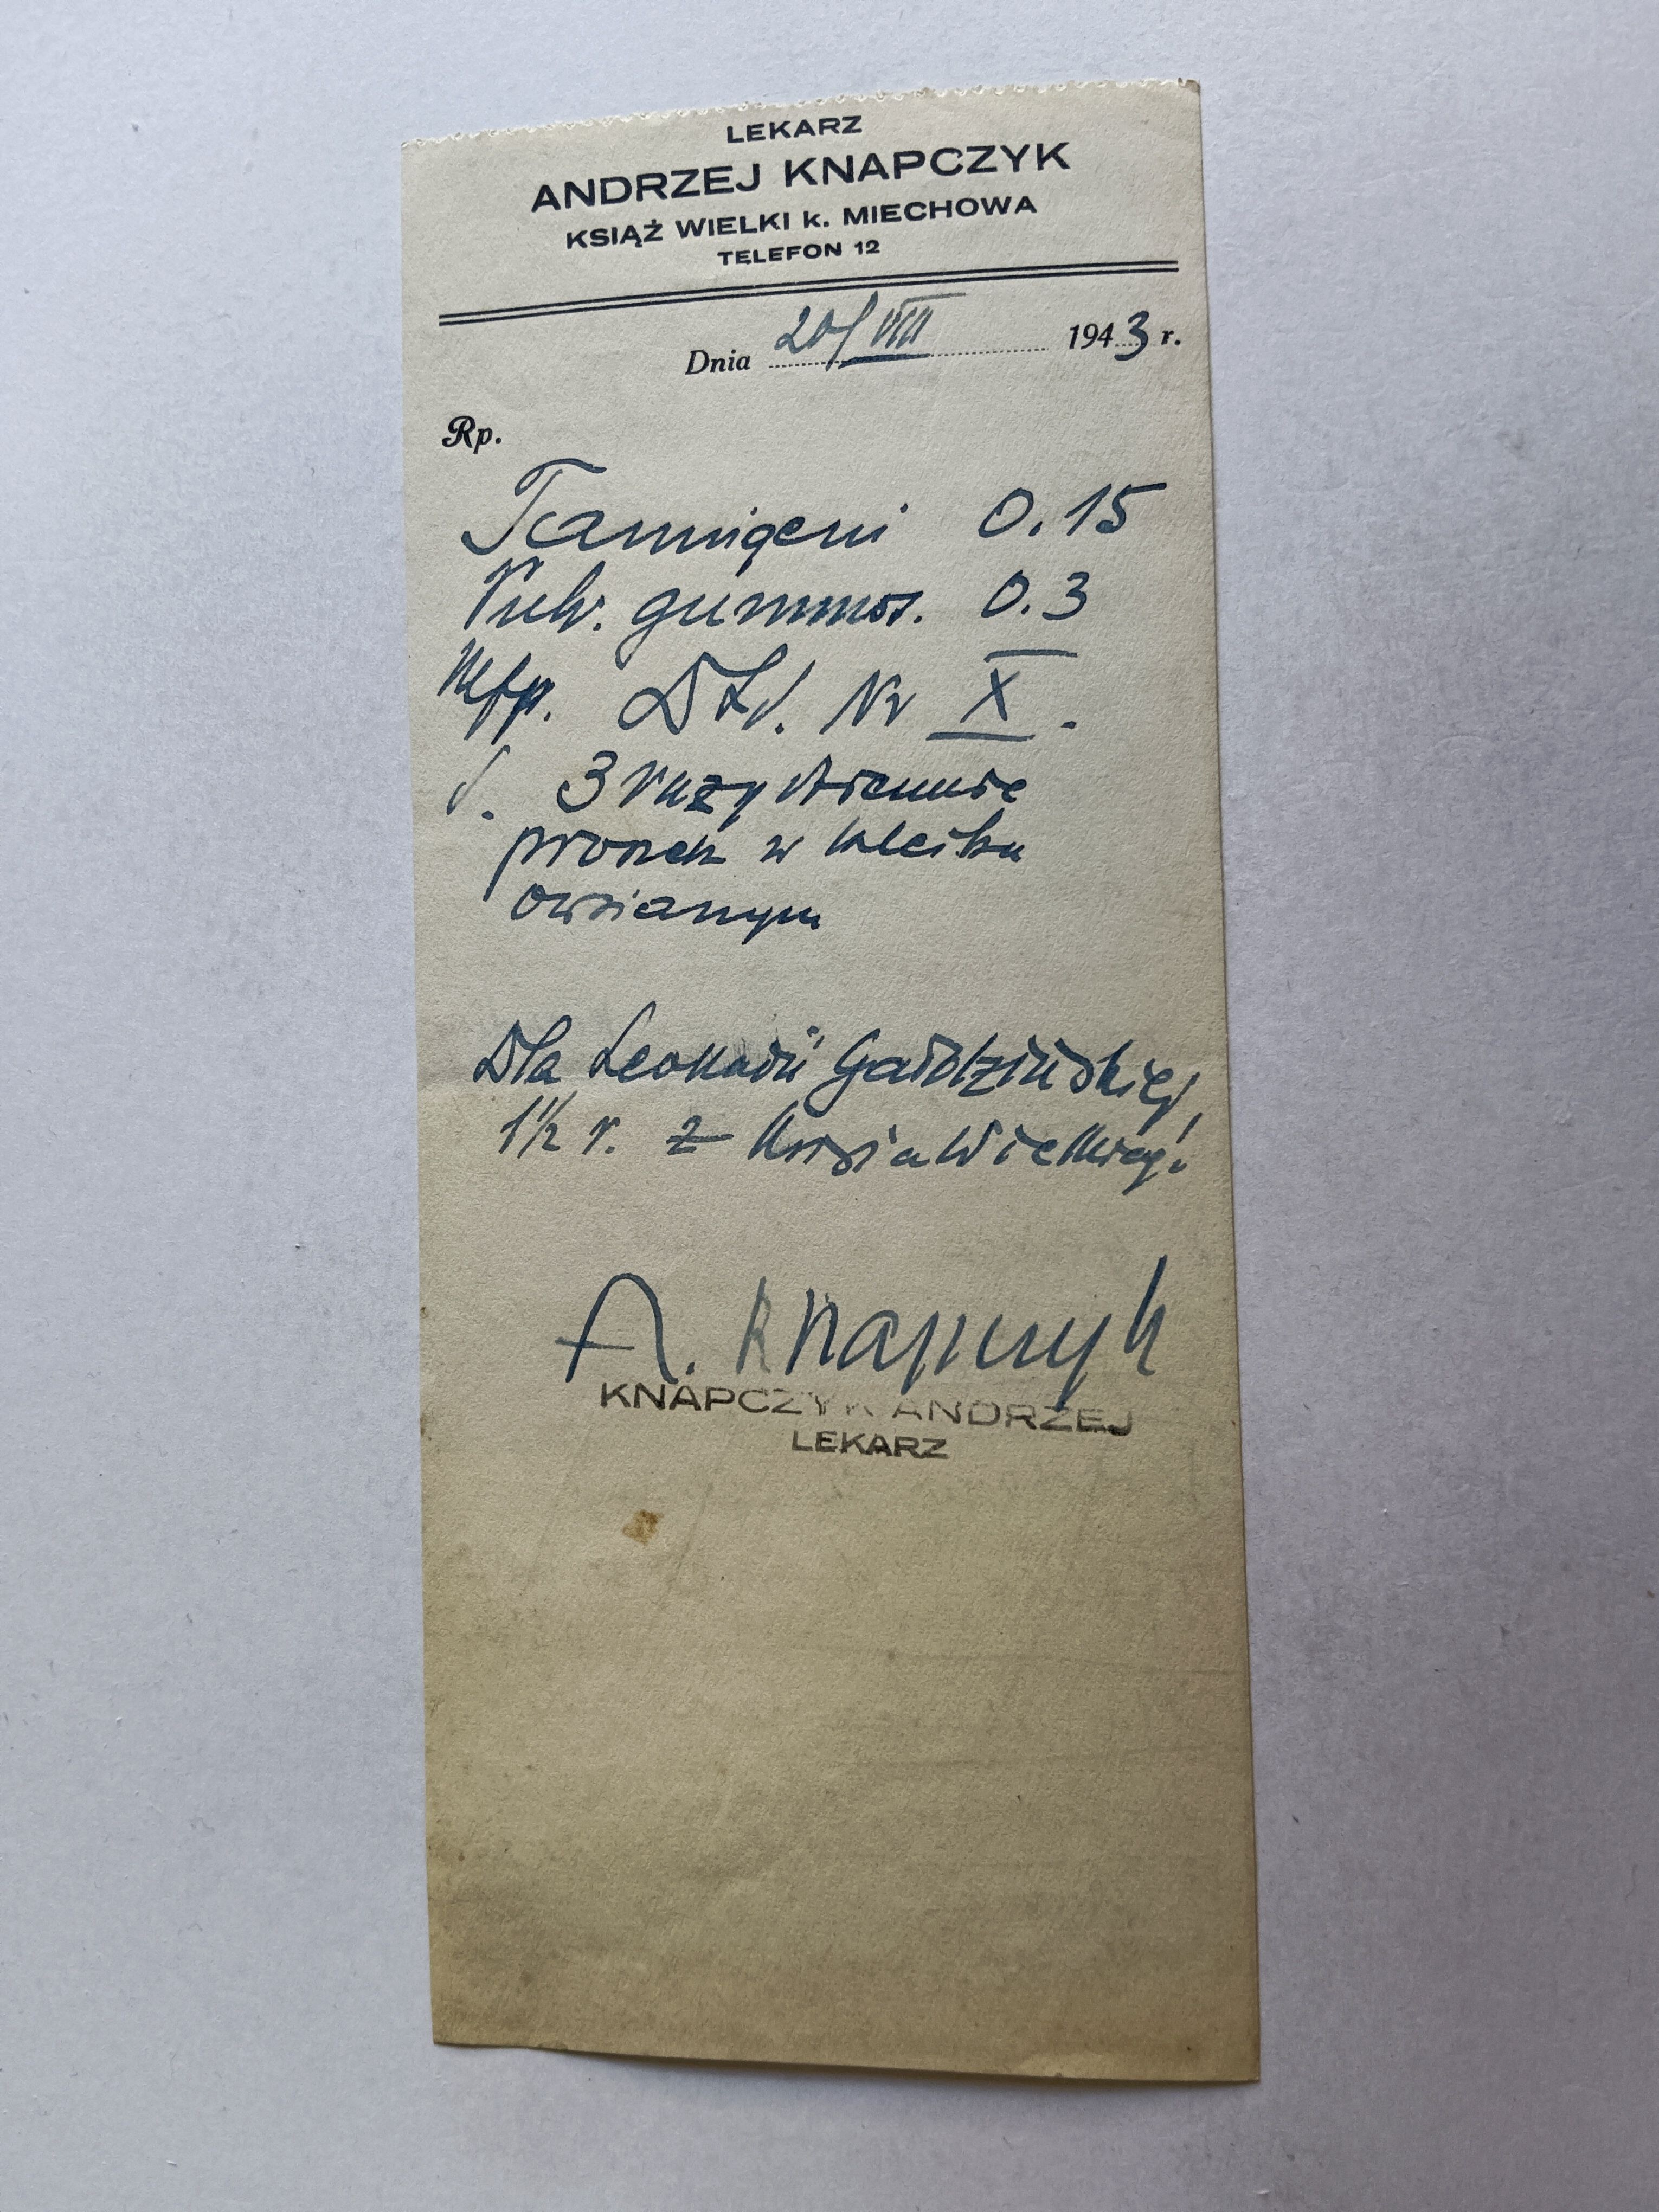 LEKARZ
ANDRZEJ KNAPCZYK
KSIĄŻ WIELKI k. MIECHOWA
TELEFON 12
Dnia 20/VIII 1943 r.
Rp.
Tannigeni 0.15
Pulv. gummos. 0.3
Mfp. Dtd. Nr X.
S. 3 razy dziennie
proszek w kleiku
owsianym
Dla Leokadii Gaidzińskiej
1½ r. z Książa Wielkiego
A. Knapczyk
KNAPCZYK ANDRZEJ
LEKARZ